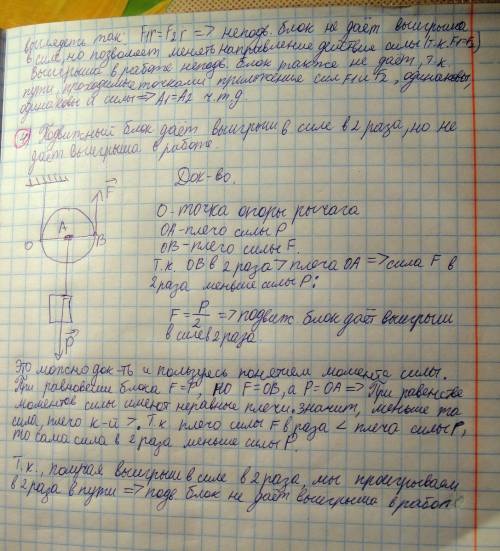 выглядеть так: F₁r=F₂r => неподв. блок не даёт выигрыша
в силе, но позволяет менять направление действия силы (т.к. F₁=F₂)
Выигрыша в работе неподв. блок также не даёт, т.к.
пути, проходимые точками приложения сил F₁ и F₂, одинаковы,
одинаковы и силы => A₁=A₂ ч.т.д.
Подвижный блок даёт выигрыш в силе в 2 раза, но не
даёт выигрыша в работе.
Док-во.
F
A
O
B
P
O-точка опоры рычага
OA-плечо силы P
OB-плечо силы F.
Т.к. OB в 2 раза > плеча OA => сила F в
2 раза меньше силы P:
F = P/2 => подвиж. блок даёт выигрыш
в силе в 2 раза
Это можно док-ть и пользуясь понятием момента силы.
При равновесии блока F=P, но F=OB, а P=OA => При равенстве
моментов силы имеют неравные плечи. значит, меньше та
сила, плечо к-й >. Т.к плечо силы F в раза < плеча силы P,
то сама сила в 2 раза меньше силы P.
Т.к., получая выигрыш в силе в 2 раза, мы проигрываем
в 2 раза в пути => подв блок не даёт выигрыша в работе